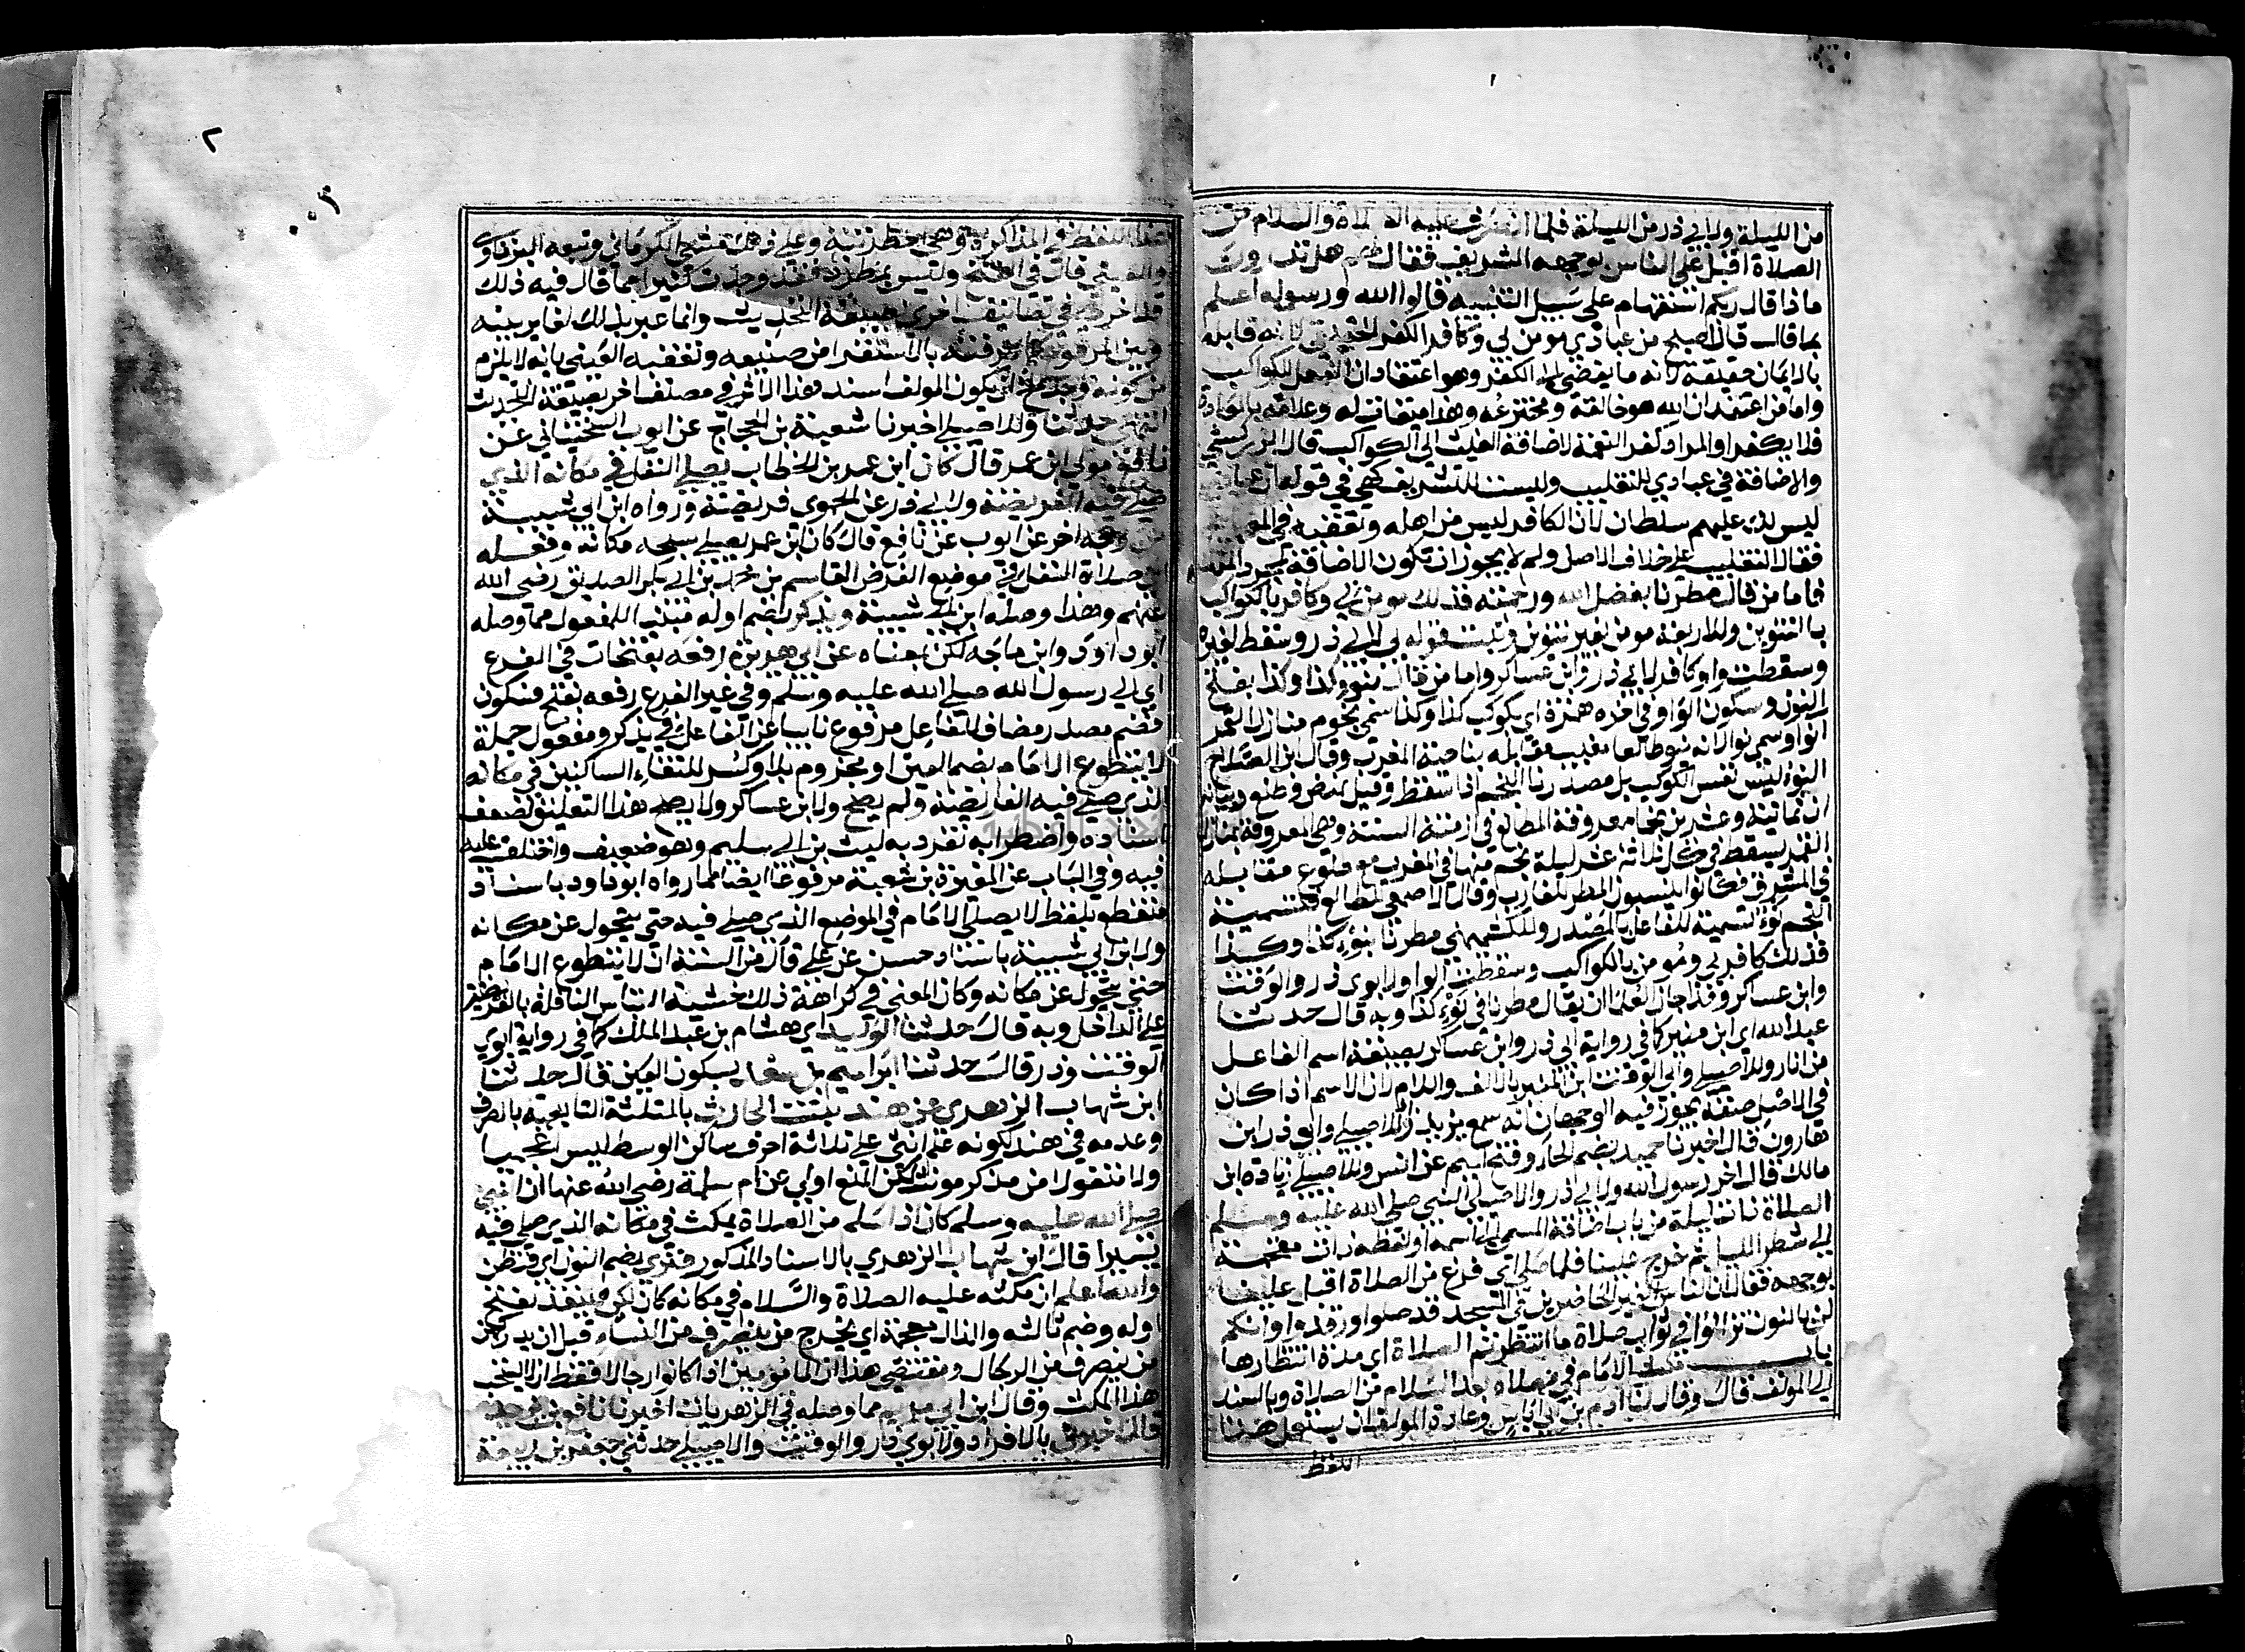 ١
من الليلة ولابي ذر من الليلة فلما انصرف عليه الصلاة والسلام من
الصلاة اقبل على الناس بوجهه الشريف فقال لهم هل تدرون
ماذا قال ربكم استفهام على سبيل التنبيه قالوا الله ورسوله اعلم
بما قال قال اصبح من عبادي مومن بي وكافر الكفر الحقيقي لانه قابله
بالايمان حقيقة لانه ما يفضي الى الكفر وهو اعتقاد ان الفعل للكواكب
واما من اعتقد ان الله هو خالقه ومخترعه وهذا ميقات له وعلامة بالعادة
فلا يكفر او المراد كفر النعمة لاضافة الغيث الى الكواكب قال الزركشي
والاضافة في عبادي للتغليب وليست للتشريف كهي في قوله ان عبادي
ليس لك عليهم سلطان لان الكافر ليس من اهله وتعقبه في
فقال التغليب على خلاف الاصل ولم لا يجوز ان تكون الاضافة لمجرد الملك
فاما من قال مطرنا بفضل الله ورحمته فذلك مومن بي وكافر بالكواكب
بالتنوين وللاربعة مومن بغير تنوين وثبت قوله بي لابي ذر وسقط لغيره
وسقطت واو وكافر لابي ذر وابن عساكر واما من قال بنوء كذا وكذا بفتح
النون وسكون الواو في اخره همزة اي بكوكب كذا وكذا سمي نجوم منازل القمر
انوا وسمي نوا لانه ينوطالعا مغيب مقابله بناحية المغرب وقال ابن الصلاح
النوء ليس نفس الكوكب بل مصدر نا النجم اذا سقط وقيل نهض وطلع وبيانه
ان ثمانية وعشرين نجما معروفة المطالع في ازمنة السنة وهي المعروفة بمنازل
القمر يسقط في كل ثلاثة عشر ليلة نجم منها في المغرب مع طلوع مقابله
في المشرق فكانوا ينسبون المطر للغارب وقال الاصمعي للطالع فتسمية
النجم نوء تسمية للفاعل بالمصدر وللكشميهني مطرنا بنوء كذا وكذا
فذلك كافر بي ومومن بالكواكب وسقطت الواو لابوي ذر والوقت
وابن عساكر وقد اجاز العلما ان يقال مطرنا في نوء كذا وبه قال حدثنا
عبد الله اي ابن منير كما في رواية ابي ذر وابن عساكر بصيغة اسم الفاعل
من انار وللاصيلي وابي الوقت ابن المنير بالالف واللام لان الاسم اذا كان
في الاصل صفة يجوز فيه الوجهان انه سمع يزيد زاد الاصيلي وابي ذر ابن
هارون قال اخبرنا حميد بضم الحا وفتح الميم عن انس وللاصيلي زيادة ابن
مالك قال اخر رسول الله ولابي ذر والاصيلي النبي صلى الله عليه وسلم
الصلاة ذات ليلة من باب اضافة المسمى الى اسمه او لفظه ذات مقحمة
الى شطر الليل ثم خرج علينا فلما صلى اي فرغ من الصلاة اقبل علينا
بوجهه فقال ان الناس غير الحاضرين في المسجد قد صلوا ورقدوا وانكم
لن بالنون تزالوا في ثواب صلاة ما انتظرتم الصلاة اي مدة انتظارها
باب مكث الامام في مصلاه بعد السلام من الصلاة وبالسند
الى المولف قال وقال لنا ادم بن ابي اياس وعادة المولف ان يستعمل هذا
اللفظ
٢
هذا اللفظ في المذاكرة وهي احط رتبة وعلى ذلك مشي الكرماني وتبعه البرماوي
والعيني قال في الفتح وليس بمطرد فقد وجدت كثيرا مما قال فيه ذلك
قد اخرجه في تصانيف اخرى بصيغة التحديث وانما عبر بذلك لغاير بينه
وبين المرفوع كما عرفته بالاستقرا من صنيعه وتعقبه العيني بانه لا يلزم
من كونه وجد ان يكون المولف اسند هذا الاثر في مصنف اخر بصيغة التحديث
انتهى حدثنا وللاصيلي اخبرنا شعبة بن الحجاج عن ايوب السختياني عن
نافع مولى ابن عمر قال كان ابن عمر بن الخطاب يصلي النفل في مكانه الذي
صلى فيه الفريضة ولابي ذر عن الحموي فريضة ورواه ابن ابي شيبة
من وجه اخر عن ايوب عن نافع قال كان ابن عمر يصلي سبحه مكانه وفعله
اي صلاة النفل في موضع الفرض القاسم بن محمد بن ابي بكر الصديق رضي الله
عنهم وهذا وصله ابن ابي شيبة ويذكر بضم اوله مبنيا للمفعول مما وصله
ابو داود وابن ماجه لكن بمعناه عن ابي هريرة رفعه بفتحات في الفرع
اي الى رسول الله صلى الله عليه وسلم وفي غير الفرع رفعه بفتح فسكون
فضم مصدر مضاف للفاعل مرفوع نايبا عن الفاعل في يذكر ومفعول جملة
لا يتطوع الامام بضم العين او مجزوم بلا وكسر لالتقاء الساكنين في مكانه
الذي صلى فيه الفريضة ولم يصح ولابن عساكر ولا يصح هذا التعليق لضعف
اسناده واضطرابه تفرد به ليث بن ابي سليم وهو ضعيف واختلف عليه
فيه وفي الباب عن المغيرة بن شعبة مرفوعا ايضا مما رواه ابو داود باسناد
منقطع بلفظ لا يصلي الامام في الموضع الذي صلى فيه حتى يتحول عن مكانه
ولابن ابي شيبة باسناد حسن عن علي قال من السنة ان لا يتطوع الامام
حتى يتحول عن مكانه وكان المعنى في كراهة ذلك خشية التباس النافلة بالفريضة
على الداخل وبه قال حدثنا ابو الوليد اي هشام بن عبد الملك كما في رواية ابوي
الوقت وذر قال حدثنا ابراهيم بن سعد بسكون العين قال حدثنا
ابن شهاب الزهري عن هند بنت الحارث بالمثلثة التابعية بالصرف
وعدمه في هند لكونه علم انثى على ثلاثة احرف ساكن الوسط ليس اعجميا
ولا منقولا من مذكر مونث لكن المنع اولى عن ام سلمة رضي الله عنها ان النبي
صلى الله عليه وسلم كان اذا سلم من الصلاة يمكث في مكانه الذي صلى فيه
يسيرا قال ابن شهاب الزهري بالاسناد المذكور فنرى بضم النون اي فنظن
والله اعلم ان مكثه عليه الصلاة والسلام في مكانه كان لكي ينفذ بفتح
اوله وضم ثالثه والذال معجمة اي يخرج من ينصرف من النساء قبل ان يدركهن
من ينصرف من الرجال ومقتضى هذا ان المامومين اذا كانوا رجالا فقط ان لا يستحب
هذا المكث وقال ابن ابي مريم مما وصله في الزهريات اخبرنا نافع بن يزيد
قال اخبرني بالافراد ولابوي ذر والوقت والاصيلي حدثني جعفر بن ربيعة